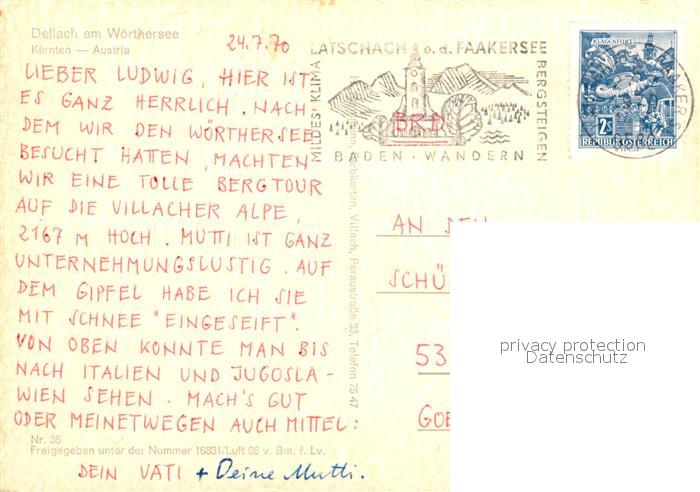 Dellach am Wörthersee
Kärnten — Austria
24.7.70
LIEBER LUDWIG, HIER IST
ES GANZ HERRLICH. NACH-
DEM WIR DEN WÖRTHERSEE
BESUCHT HATTEN, MACHTEN
WIR EINE TOLLE BERGTOUR
AUF DIE VILLACHER ALPE,
2167 M HOCH. MUTTI IST GANZ
UNTERNEHMUNGSLUSTIG. AUF
DEM GIPFEL HABE ICH SIE
MIT SCHNEE "EINGESEIFT".
VON OBEN KONNTE MAN BIS
NACH ITALIEN UND JUGOSLA-
WIEN SEHEN. MACH'S GUT
ODER MEINETWEGEN AUCH MITTEL:
Nr. 35
Freigegeben unter der Nummer 16831/Luft 66 v. Bm. f. Lv.
DEIN VATI + Deine Mutti.
Villach, Peraustraße 33, Telefon 75 47
LATSCHACH o. d. FAAKERSEE
MILDES KLIMA
BERGSTEIGEN
BADEN · WANDERN
BRD
KLAGENFURT
2S
REPUBLIK ÖSTERREICH
AN DEN
SCHÜ
53
GOE
privacy protection
Datenschutz